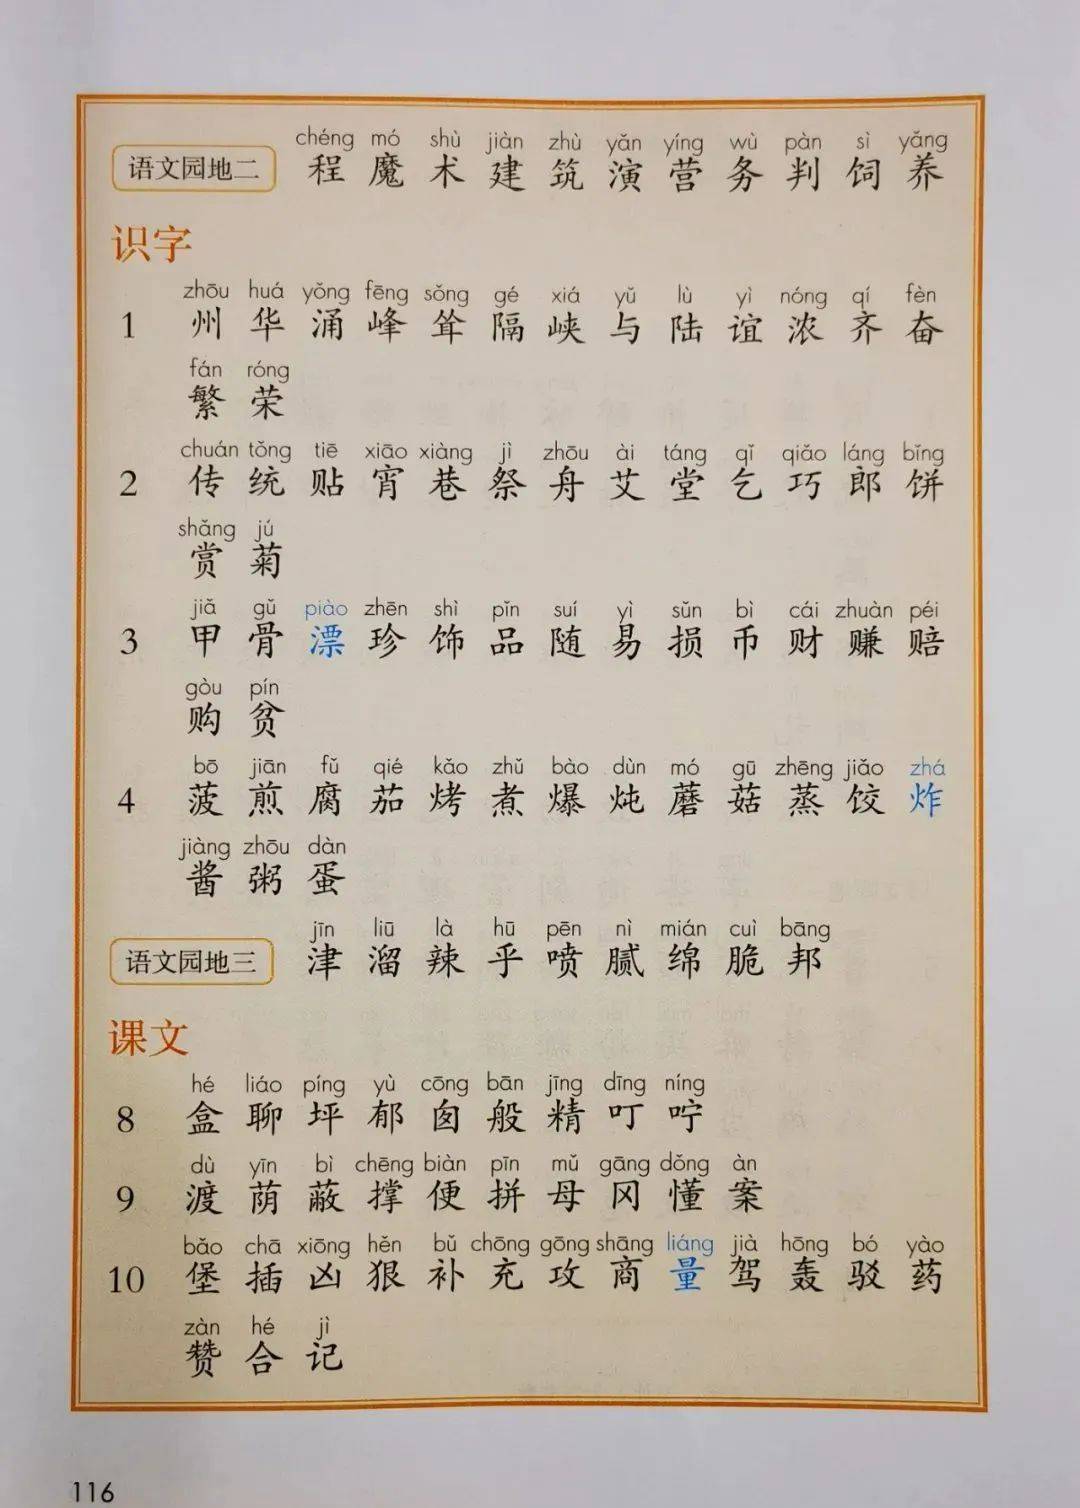 chéng mó shù jiàn zhù yǎn yíng wù pàn sì yǎng
语文园地二 程 魔 术 建 筑 演 营 务 判 饲 养
识字
zhōu huá yǒng fēng sǒng gé xiá yǔ lù yì nóng qí fèn
1 州 华 涌 峰 耸 隔 峡 与 陆 谊 浓 齐 奋
fán róng
繁 荣
chuán tǒng tiē xiāo xiàng jì zhōu ài táng qǐ qiǎo láng bǐng
2 传 统 贴 宵 巷 祭 舟 艾 堂 乞 巧 郎 饼
shǎng jú
赏 菊
jiǎ gǔ piào zhēn shì pǐn suí yì sǔn bì cái zhuàn péi
3 甲 骨 漂 珍 饰 品 随 易 损 币 财 赚 赔
gòu pín
购 贫
bō jiān fǔ qié kǎo zhǔ bào dùn mó gū zhēng jiǎo zhá
4 菠 煎 腐 茄 烤 煮 爆 炖 蘑 菇 蒸 饺 炸
jiàng zhōu dàn
酱 粥 蛋
jīn liū là hū pēn nì mián cuì bāng
语文园地三 津 溜 辣 乎 喷 腻 绵 脆 邦
课文
hé liáo píng yù cōng bān jīng dīng níng
8 盒 聊 坪 郁 囱 般 精 叮 咛
dù yīn bì chēng biàn pīn mǔ gāng dǒng àn
9 渡 荫 蔽 撑 便 拼 母 冈 懂 案
bǎo chā xiōng hěn bǔ chōng gōng shāng liáng jià hōng bó yào
10 堡 插 凶 狠 补 充 攻 商 量 驾 轰 驳 药
zàn hé jì
赞 合 记
116